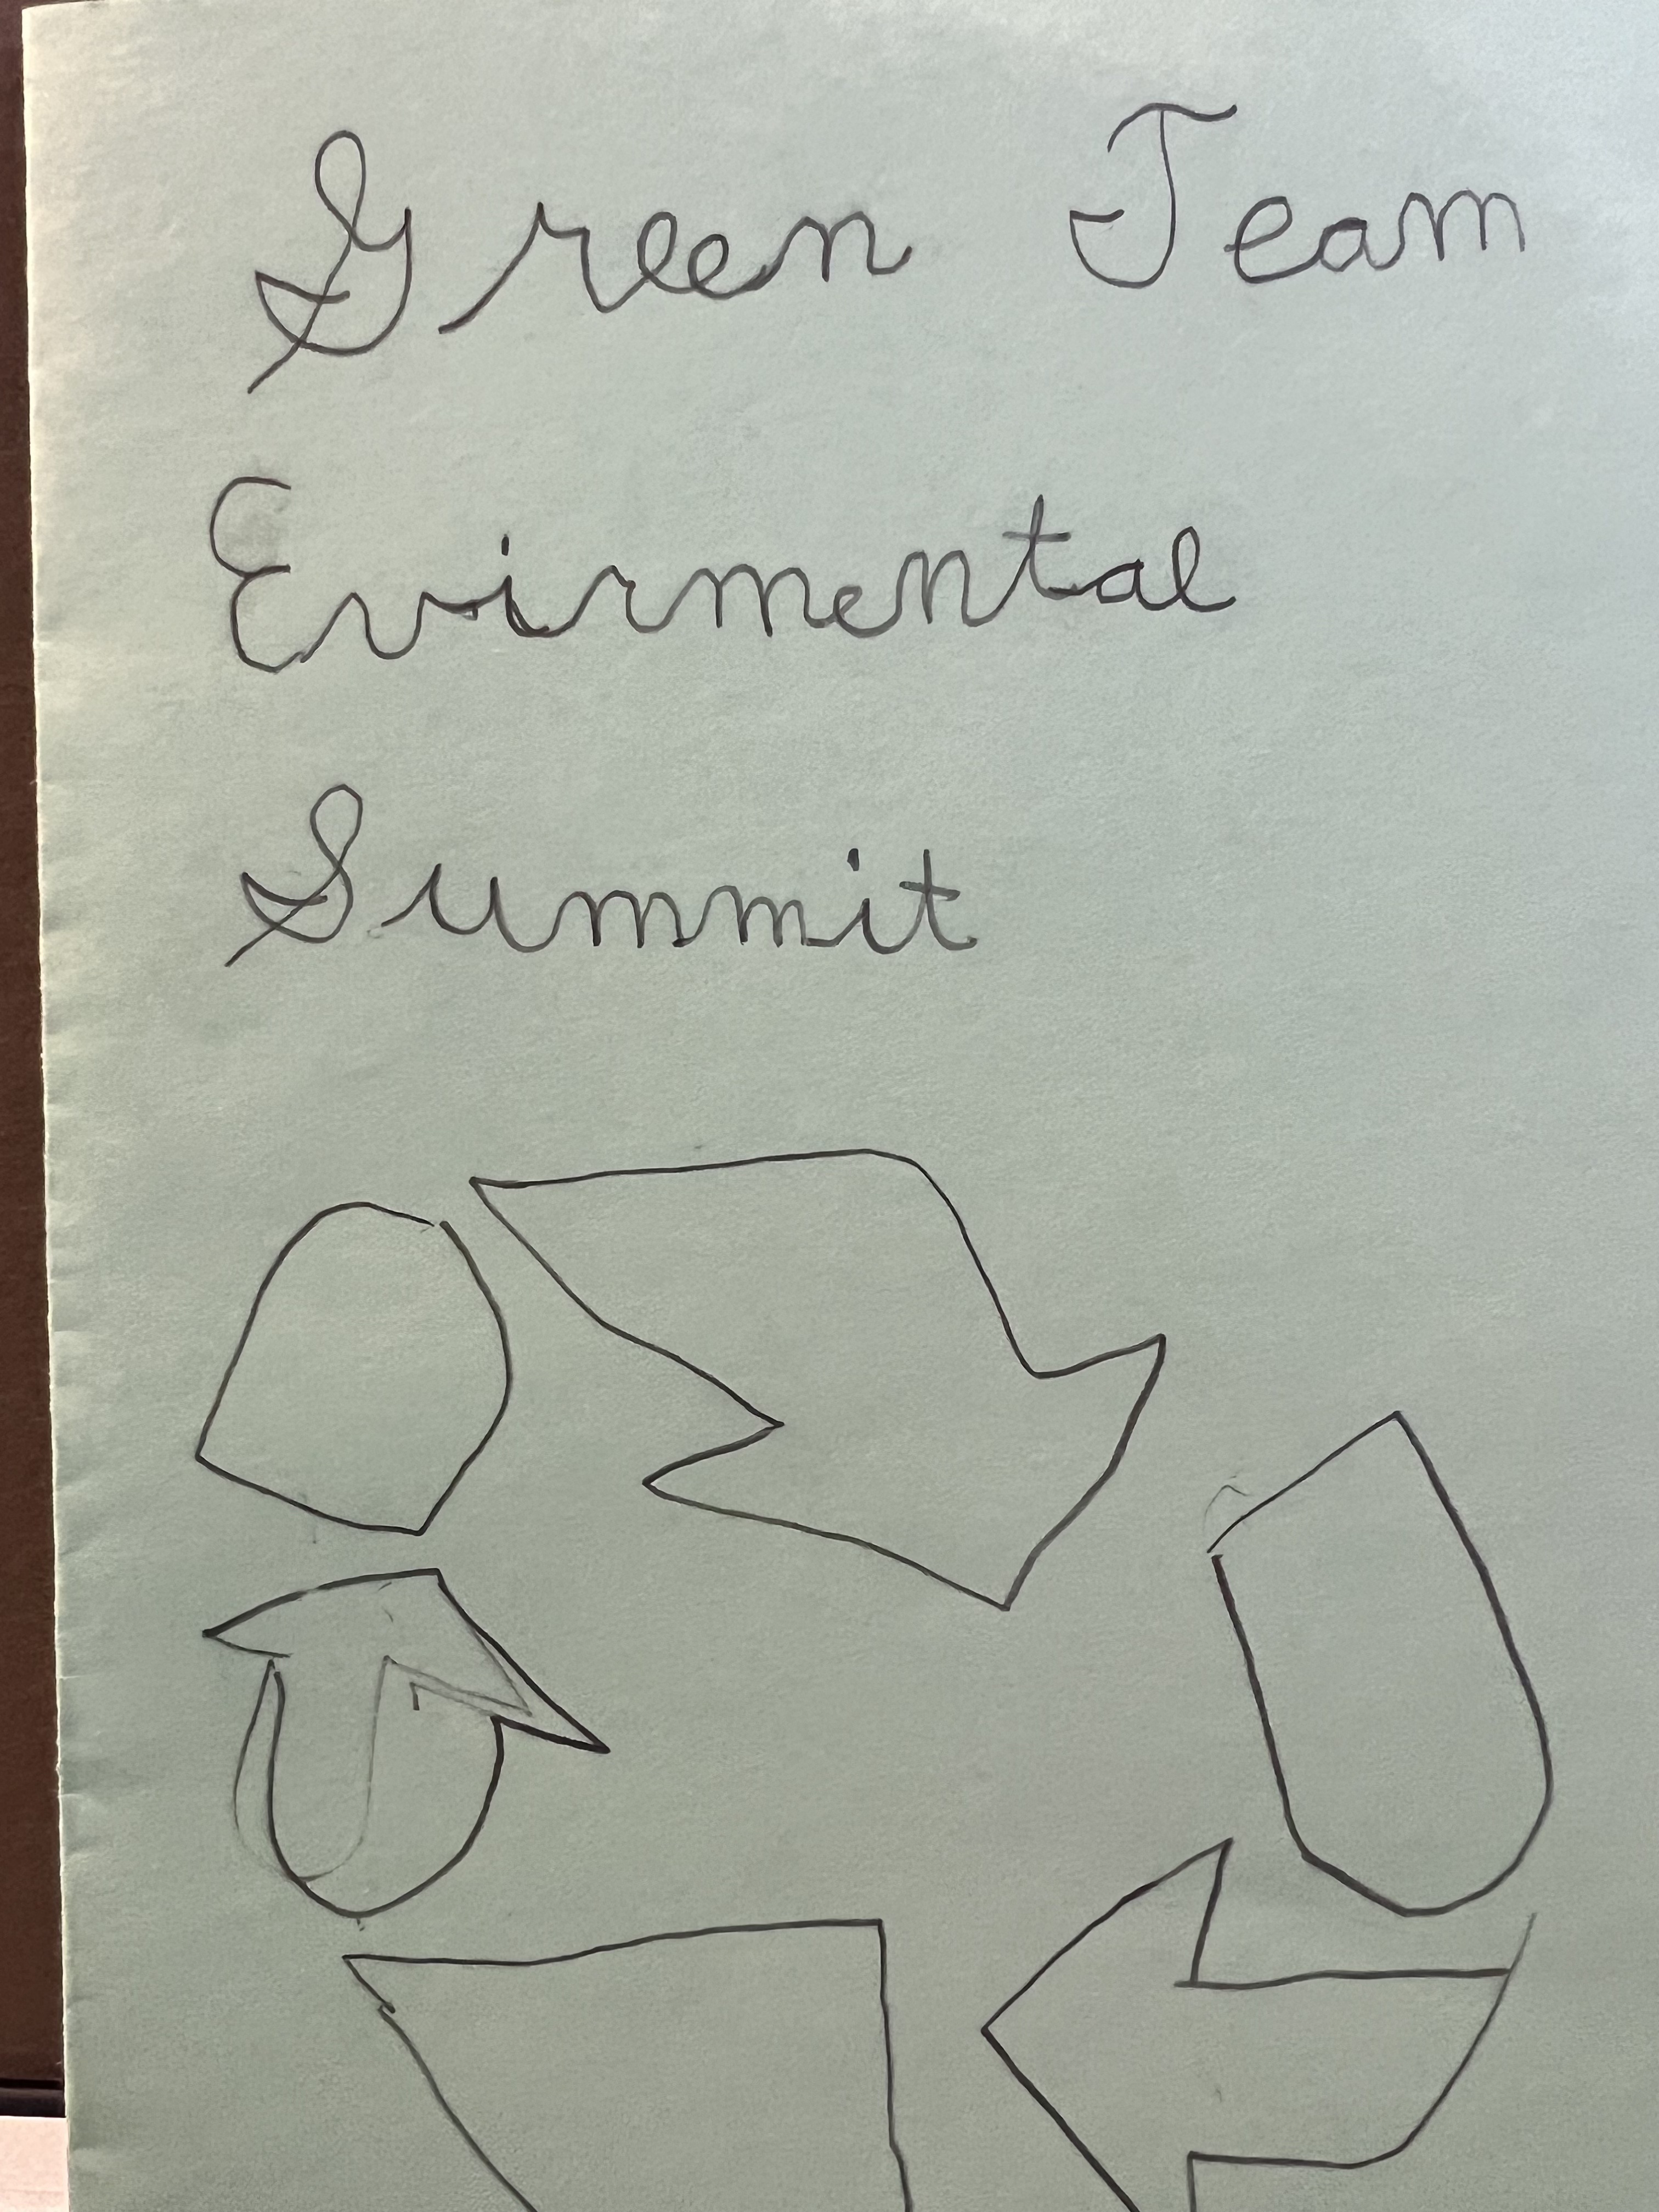 Green Team
Evirmental
Summit